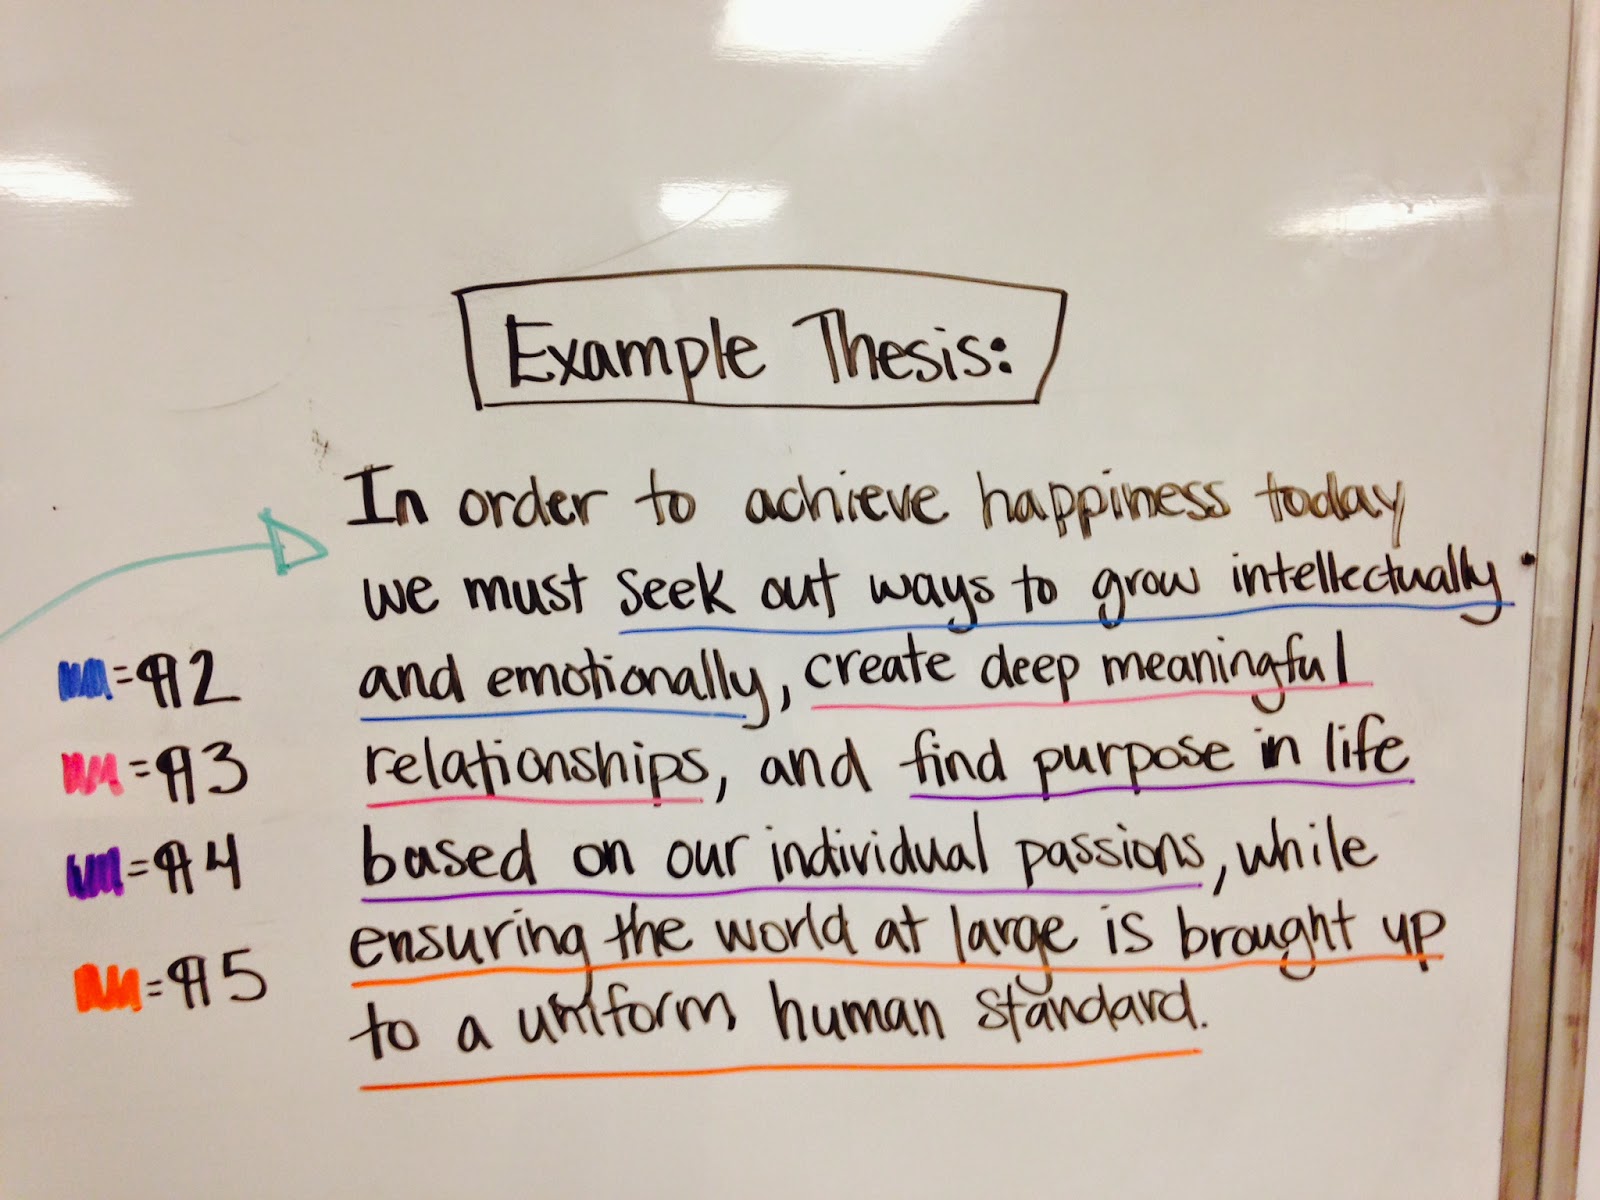 Example Thesis:
In order to achieve happiness today
we must seek out ways to grow intellectually
and emotionally, create deep meaningful
relationships, and find purpose in life
based on our individual passions, while
ensuring the world at large is brought up
to a uniform human standard.
= ¶2
= ¶3
= ¶4
= ¶5